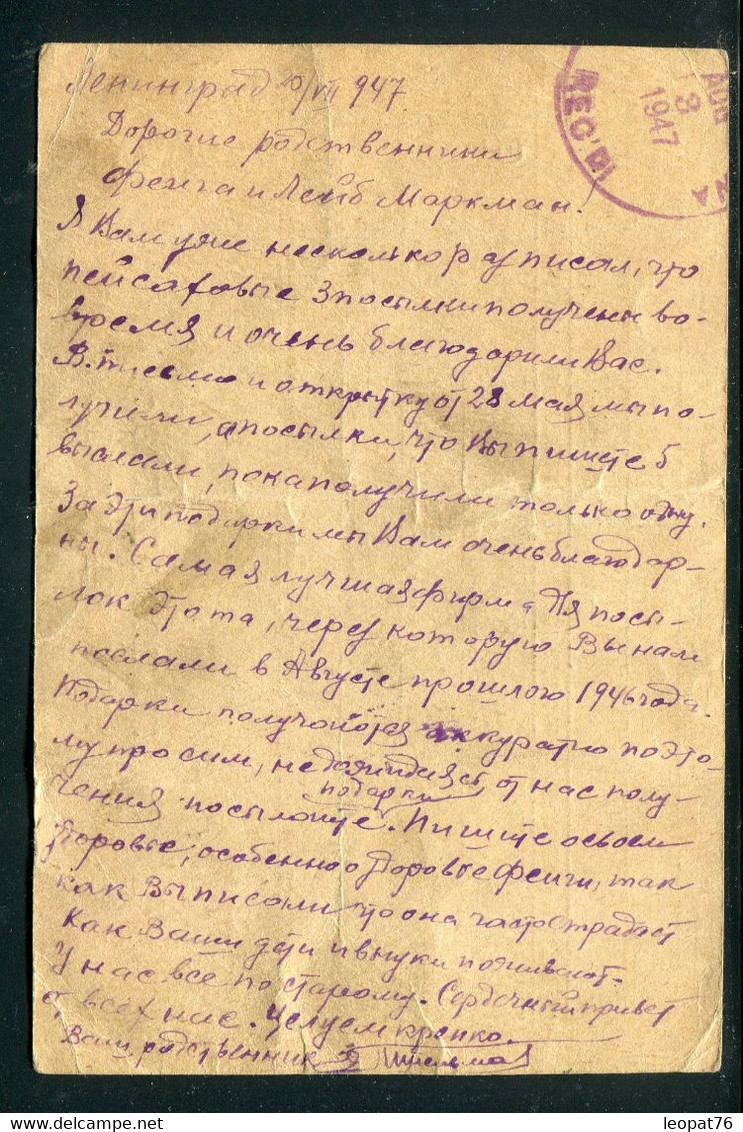 Ленинград 20/VII 947
REC'D
AUG
13
1947
NA
Дорогие родственники
Фейга и Лейб Маркман!
Я Вам уже несколько раз писал, что
пейсаховые 3 посылки получены во-
время и очень благодарили Вас.
В. письмо и открытку от 28 мая мы по-
лучили, а посылки, что Вы пишете 5
выслали, пока получили только одну.
За эти подарки мы Вам очень благодар-
ны. Самая лучшая фирма для посы-
лок это та, через которую Вы нам
послали в Августе прошлого 1946 года.
Подарки получаются аккуратно поэто-
му просим, не дожидаясь от нас полу-
подарки
чения посылайте. Пишите о своем
здоровье, особенно о здоровье Фейги, так
как Вы писали что она часто страдает
Как Ваши дети и внуки поживают.
У нас все по старому. Сердечный привет
от всех нас. Целуем крепко.
Ваш родственник
leopat76